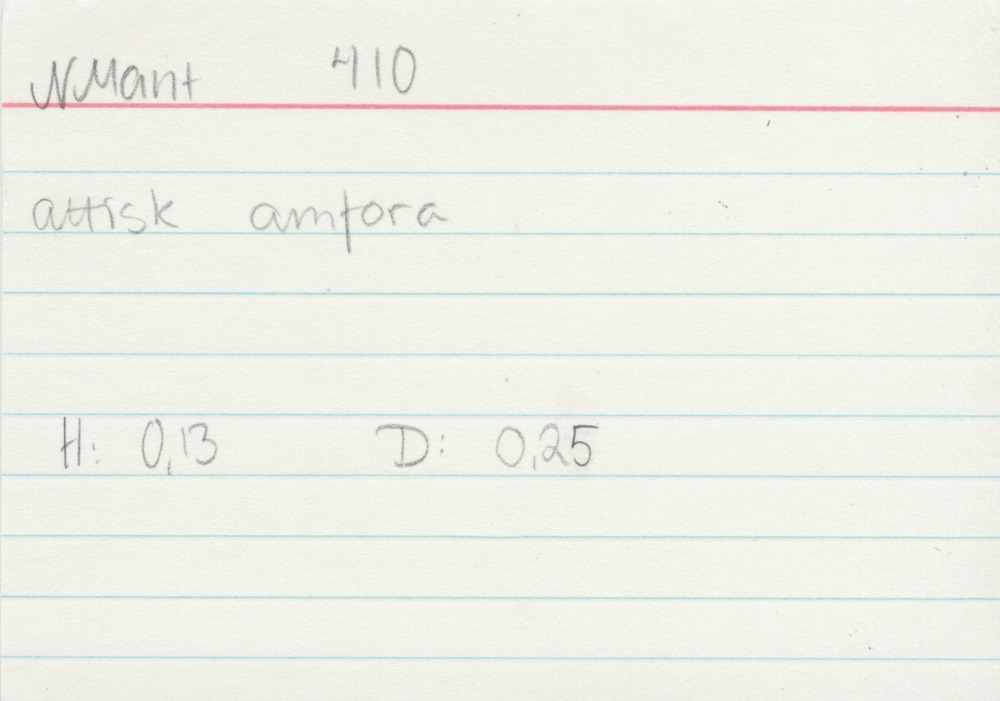 NMant 410
attisk amfora
H: 0,13 D: 0,25